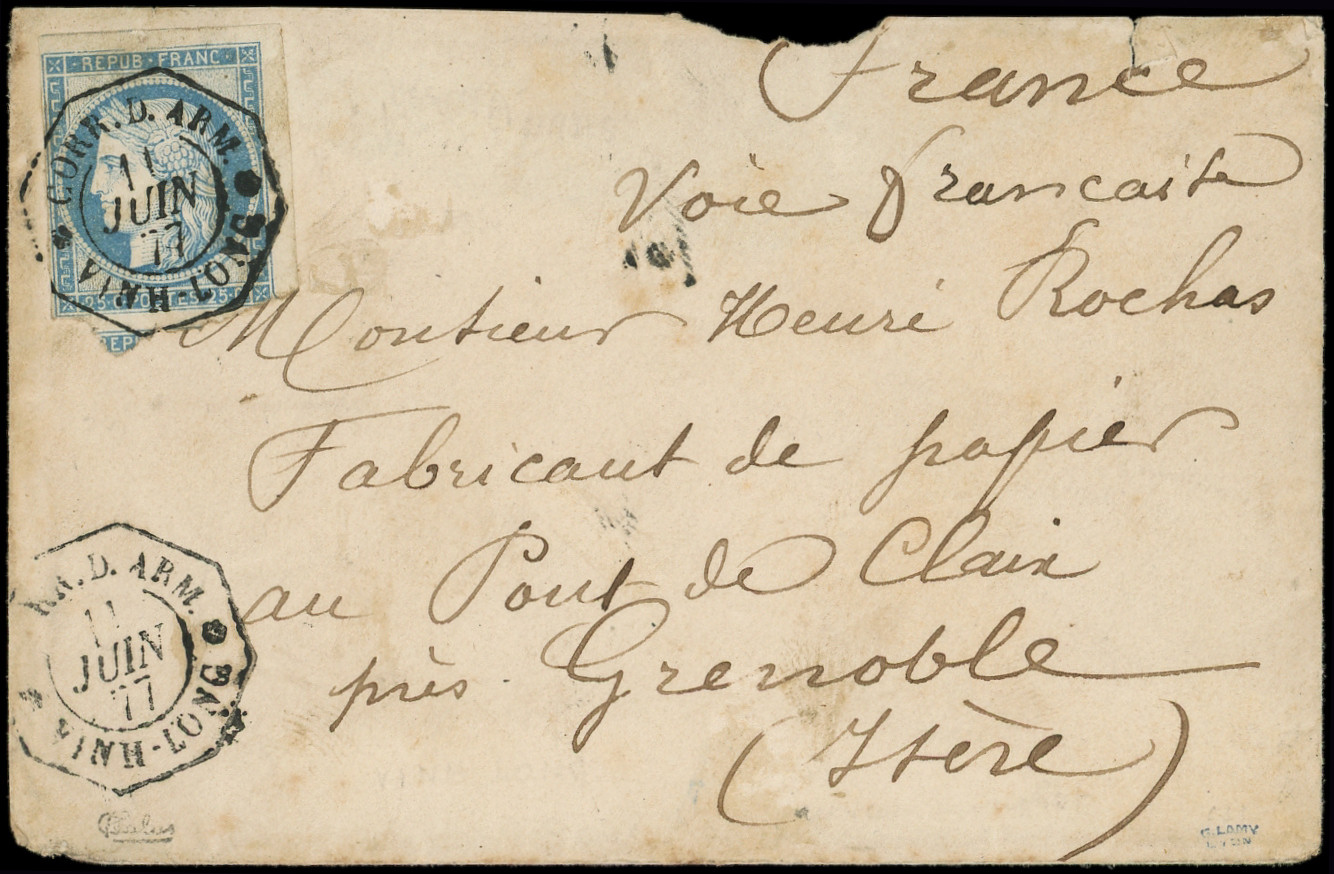 REPUB·FRANC·
CORR. D. ARM.
11
JUIN
77
VINH-LONG
25·POSTES·25
REP
France
Voie francaise
Monsieur Henri Rochas
Fabricant de papier
au Pont de Claix
près Grenoble
(Isère)
RR. D. ARM.
11
JUIN
77
VINH-LONG
G.LAMY
LYON